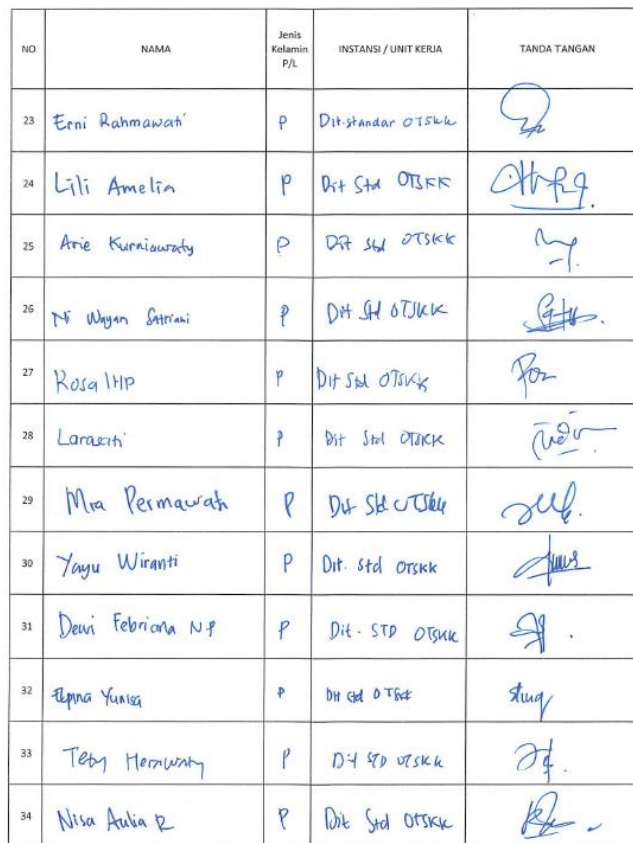 NO NAMA Jenis Kelamin P/L INSTANSI / UNIT KERJA TANDA TANGAN
23 Erni Rahmawati P Dit.standar OTSKK
24 Lili Amelia P Dit Std OTSKK
25 Arie Kurniawaty P Dit Std OTSKK
26 Ni Wayan Satriani P Dit Std OTSKK
27 Rosa P Dit Std OTSKK
28 Larasati P Dit Std OTSKK
29 Mra Permawati P Dit Std OTSKK
30 Yayu Wiranti P Dit. Std OTSKK
31 Dewi Febriana N.P P Dit. STD OTSKK
32 Yunisa P Dit Std
33 Tety Herawaty P Dit STD OTSKK
34 Nisa Aulia R P Dit Std OTSKK